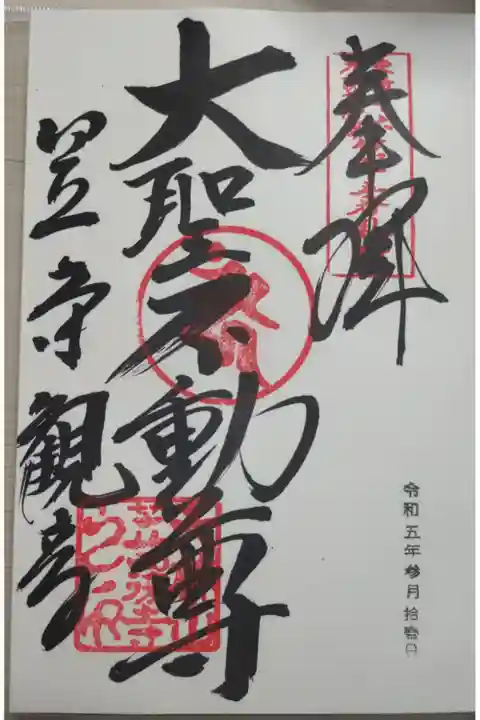 奉拝
大聖不動尊
笠寺観音
令和五年参月拾壱日